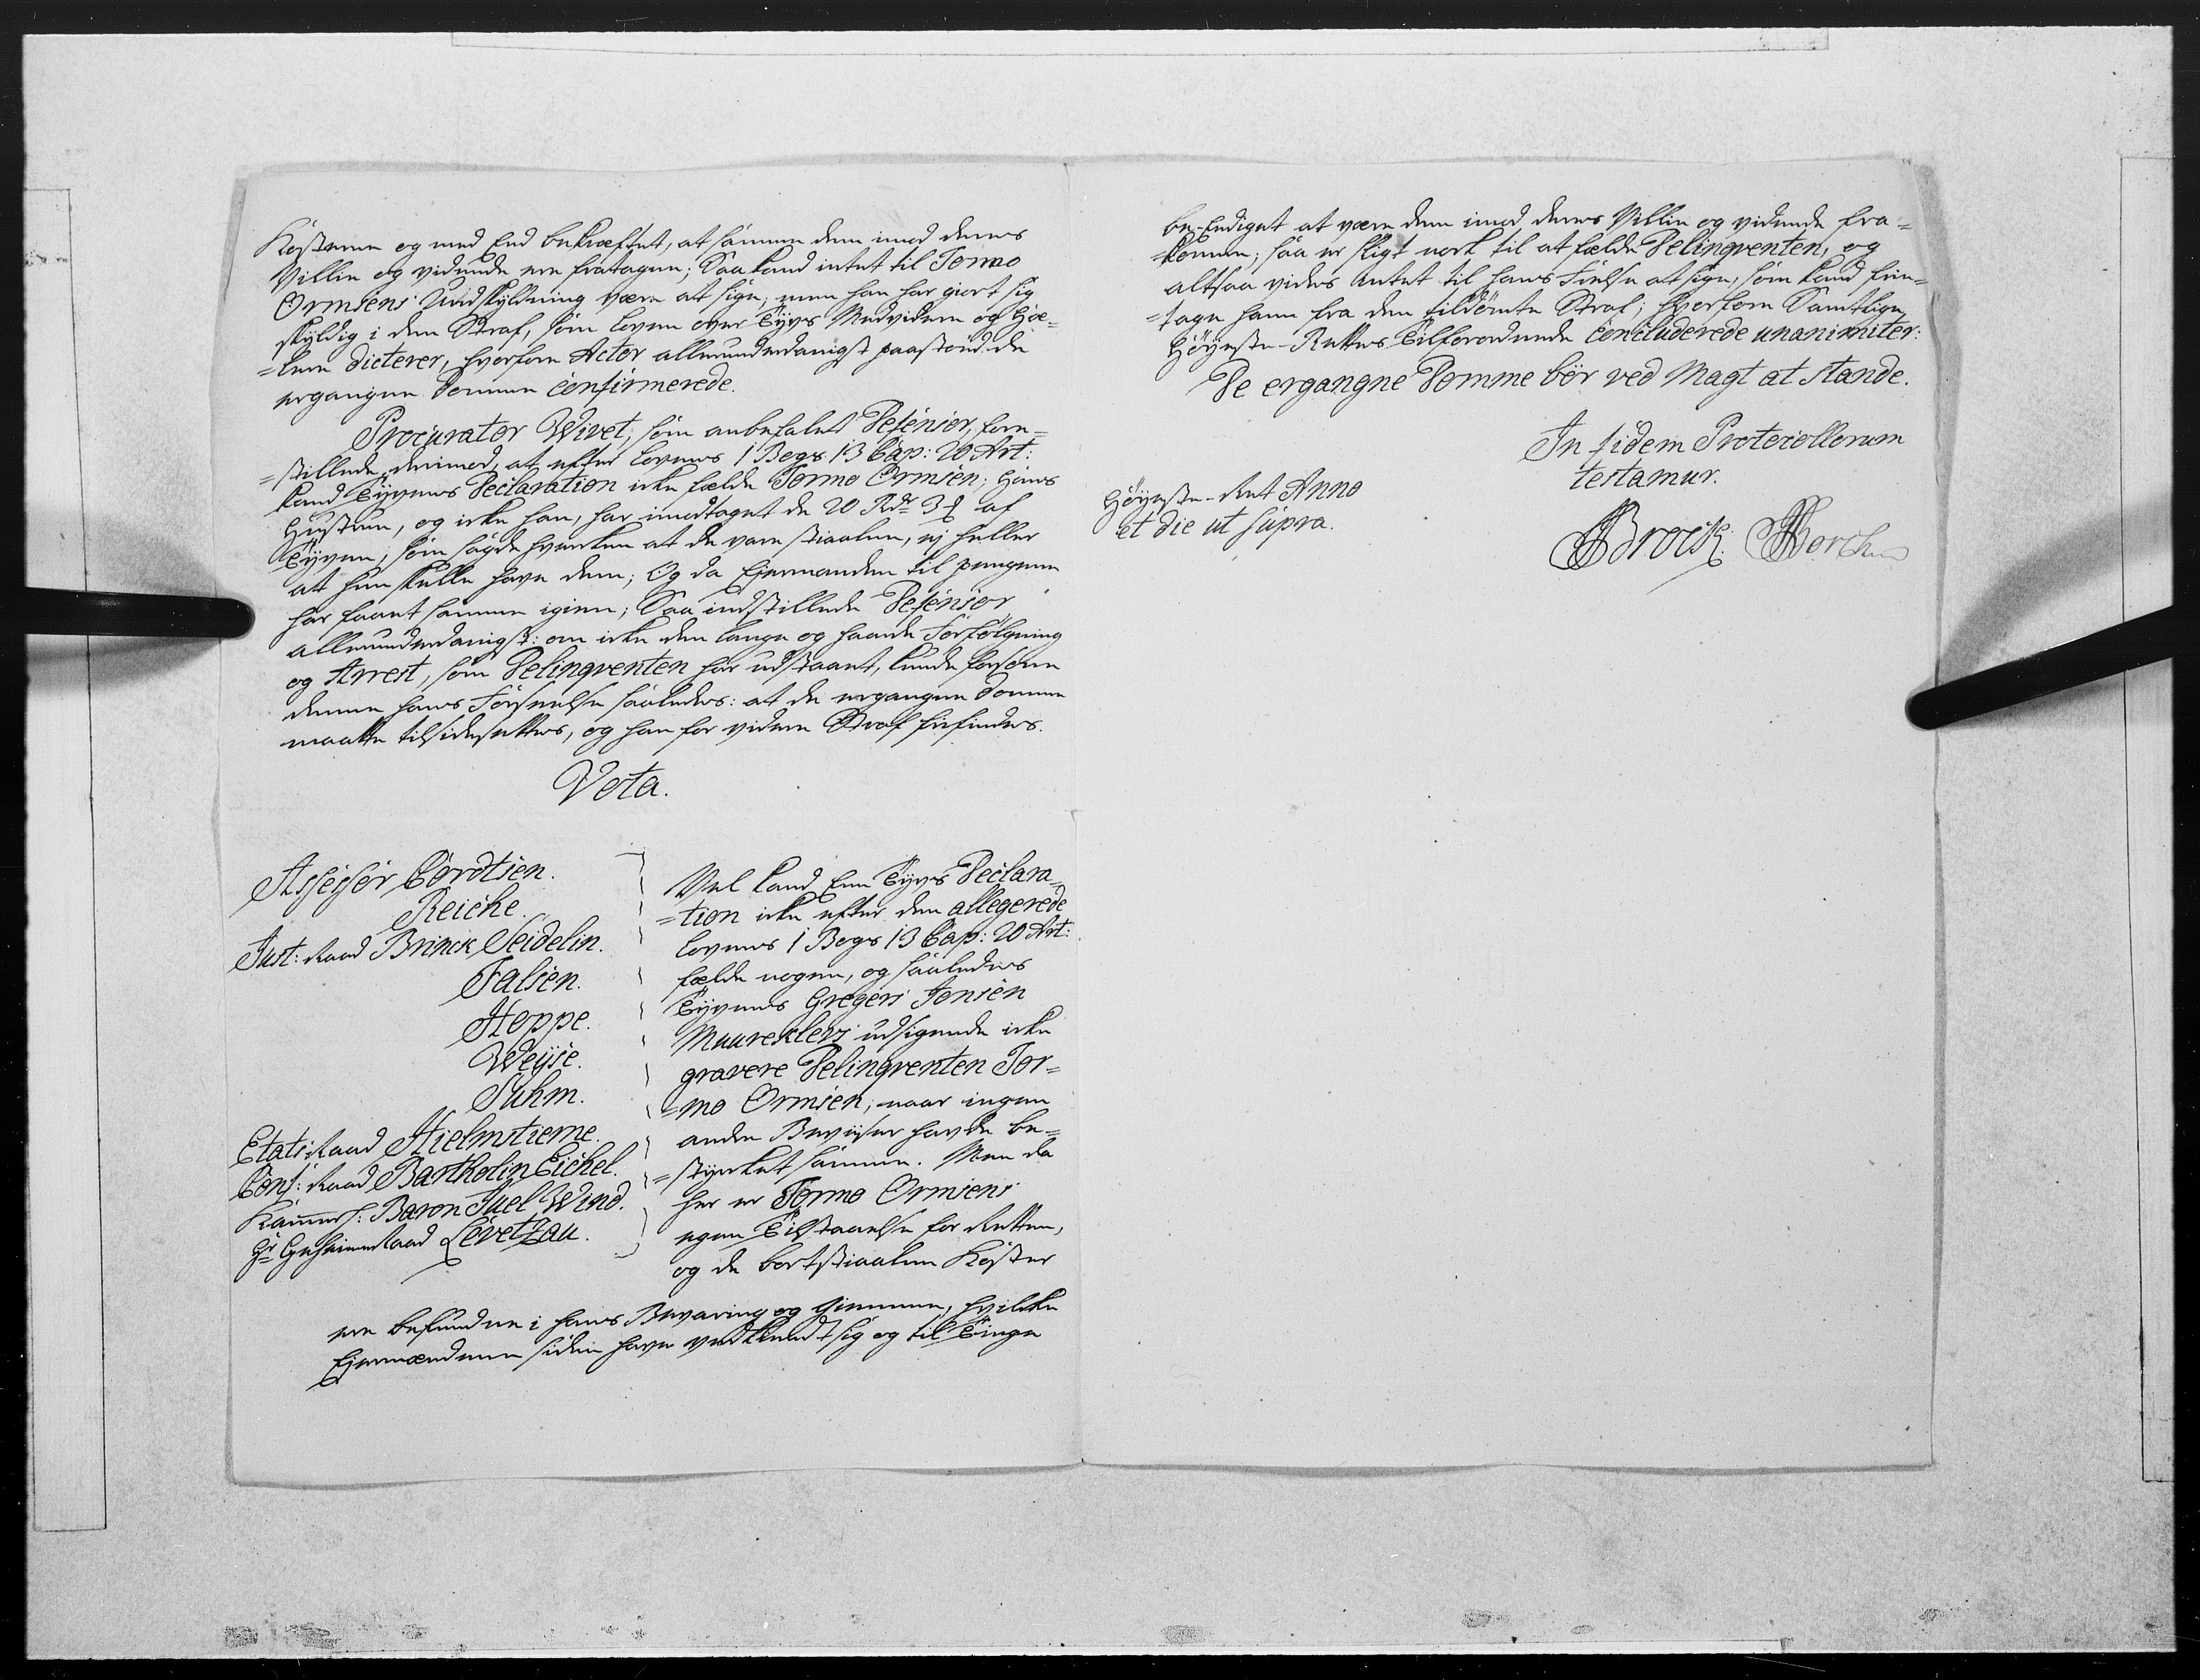 Kosterne og med Eed bekræftet, at samme dem imod deres
Villie og vidende ere fratagne; Saa kand intet til Tormo
Ormsens Undskyldning være at sige; men han har giort sig
skyldig i den Straf, som Loven over Tyvs Medvidere og Hæ-
=lere dicterer, hvorfore Actor allerunderdanigst paastoed de
ergangne Domme confirmerede.
Procurator Wivet, som anbefalet Defensor, fore-
=stillede derimod, at efter Lovens 1 Bogs 13 Cap: 20 Art:
kand Tyvens Declaration icke fælde Tormo Ormsen; Hans
Hustrue, og icke han, har imodtaget de 20 Rdr 3 ß af
Tyven, som sagde hvercken at de vare stiaalne, ej heller
at hun skulle have dem; Og da Ejermanden til pengene
har faaet samme igien; Saa indstillede Defensor
allerunderdanigst: om icke den lange og haarde Forfølgning
og Arrest, som Delinqventen har udstaaet, kunde forsone
denne hans Forseelse saaledes: at de ergangne Domme
maatte tilsidesættes, og han for videre Straf befindes.
Vota.
Assessor Cordtsen.
Reiche.
Just: Raad Brinck Seidelin.
Falsen.
Hoppe.
Weyse.
Suhm.
Etats Raad Hielmstierne.
Conf: Raad Bartholin Eichel.
Kammerh: Baron Juel Wind.
Hr Geheimeraad Levetzau.
Vel kand Een Tyvs Declara-
=tion icke efter den allegerede
Lovens 1 Bogs 13 Cap: 20 Art:
fælde nogen, og saaledes
Tyvens Gregers Jensen
Muureklevs udsigende icke
gravere Delinqventen Tor-
=mo Ormsen, naar ingen
andre Beviiser havde be-
=styrket samme. Men da
her er Tormo Ormsens
egen Tilstaaelse for Retten,
og de bortstiaalne Koster
ere befundne i hans Bevaring og Giemme, hvilcke
Ejermændene siden have vedkiendt sig og til Tinge
be-Eediget at være dem imod deres Villie og vidende fra-
=komne; saa er sligt nock til at fælde Delinqventen, og
altsaa vides Intet til hans Frelse at sige, som kand frie-
=tage ham fra den tildømte Straf; Hvorfore Samtlige
Høyeste-Rettes Tilforordnede concluderede unanimiter:
De ergangne Domme bør ved Magt at stande.
In fidem Protocollorum
testamur.
Høyeste-Ret Anno
et die ut supra.
Brock. Horch